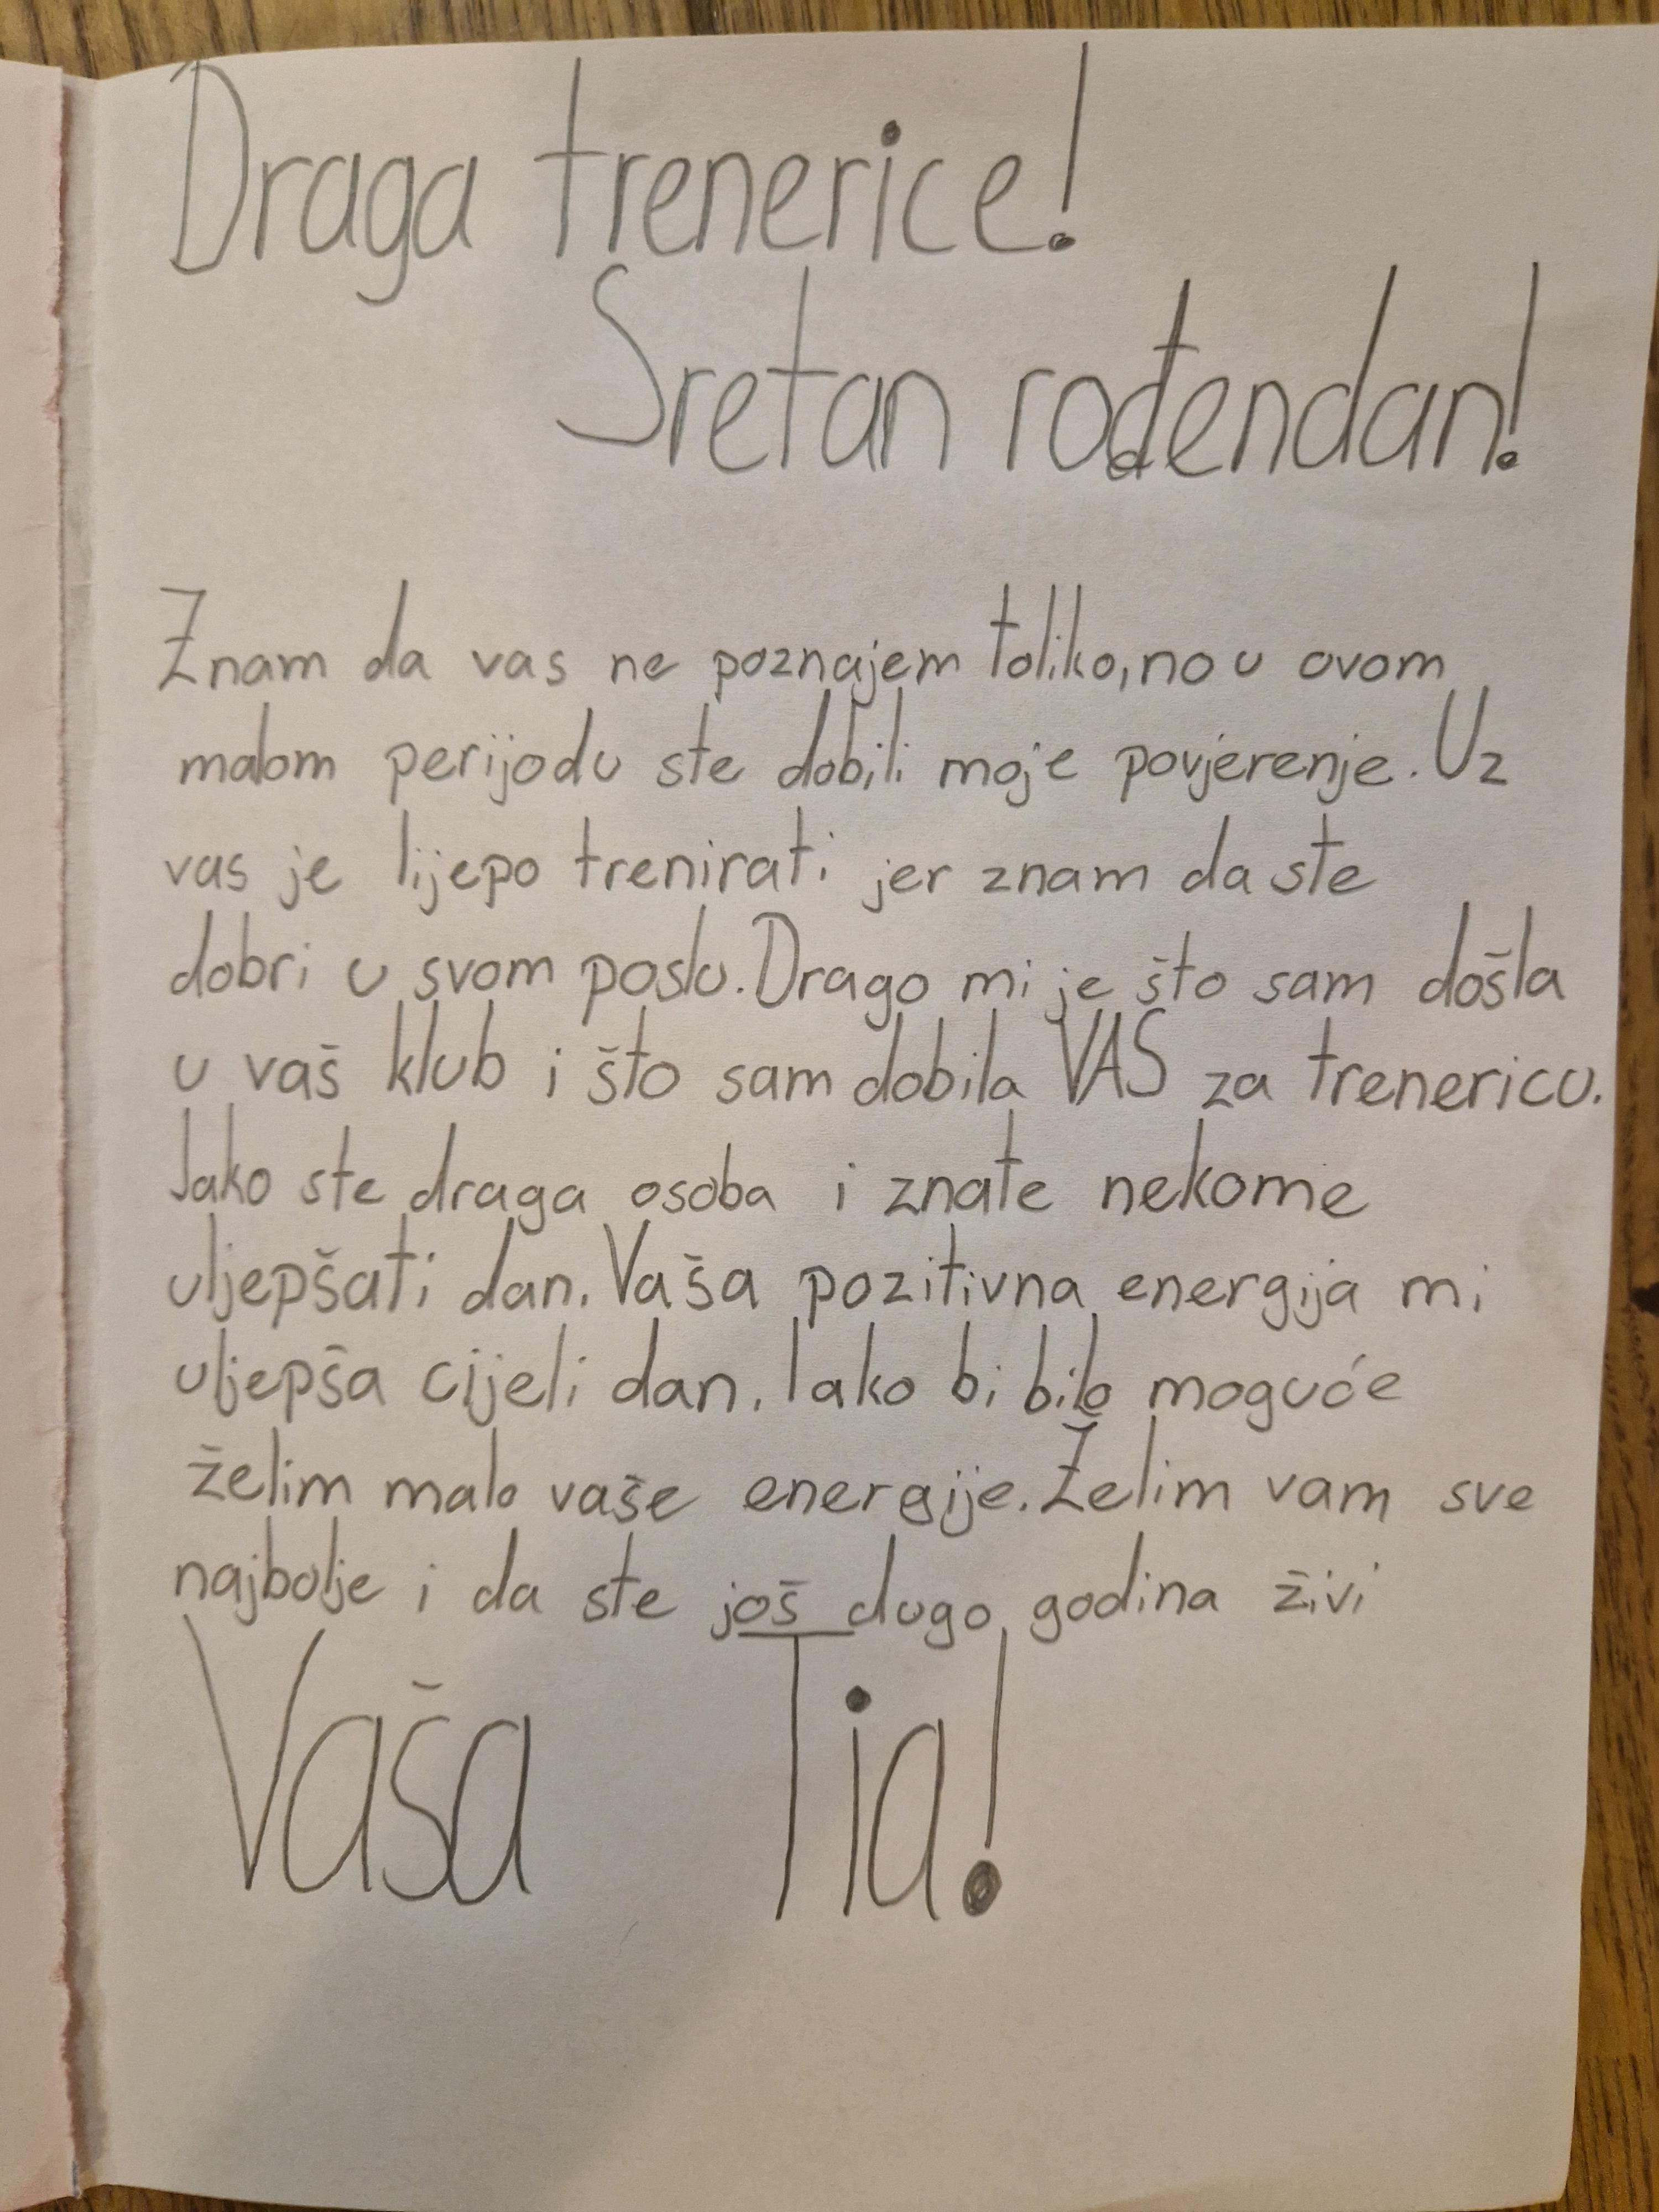 Draga trenerice!
Sretan rođendan!
Znam da vas ne poznajem toliko, no u ovom
malom perijodu ste dobili moje povjerenje. Uz
vas je lijepo trenirati jer znam da ste
dobri u svom poslu. Drago mi je što sam došla
u vaš klub i što sam dobila VAS za trenericu.
Jako ste draga osoba i znate nekome
uljepšati dan. Vaša pozitivna energija mi
uljepša cijeli dan. Iako bi bilo moguće
želim malo vaše energije. Želim vam sve
najbolje i da ste još dugo godina živi
Vaša Tia!